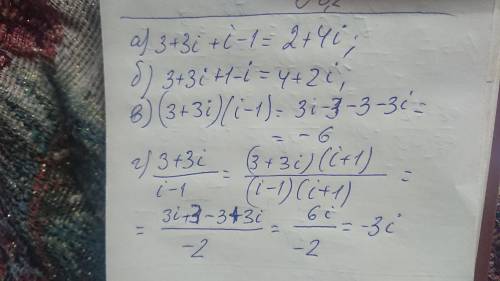 а) 3+3i+i-1=2+4i;
б) 3+3i+1-i=4+2i;
в) (3+3i)(i-1)=3i-3-3-3i=
=-6
г) \frac{3+3i}{i-1}=\frac{(3+3i)(i+1)}{(i-1)(i+1)}=
=\frac{3i+3-3+3i}{-2}=\frac{6i}{-2}=-3i